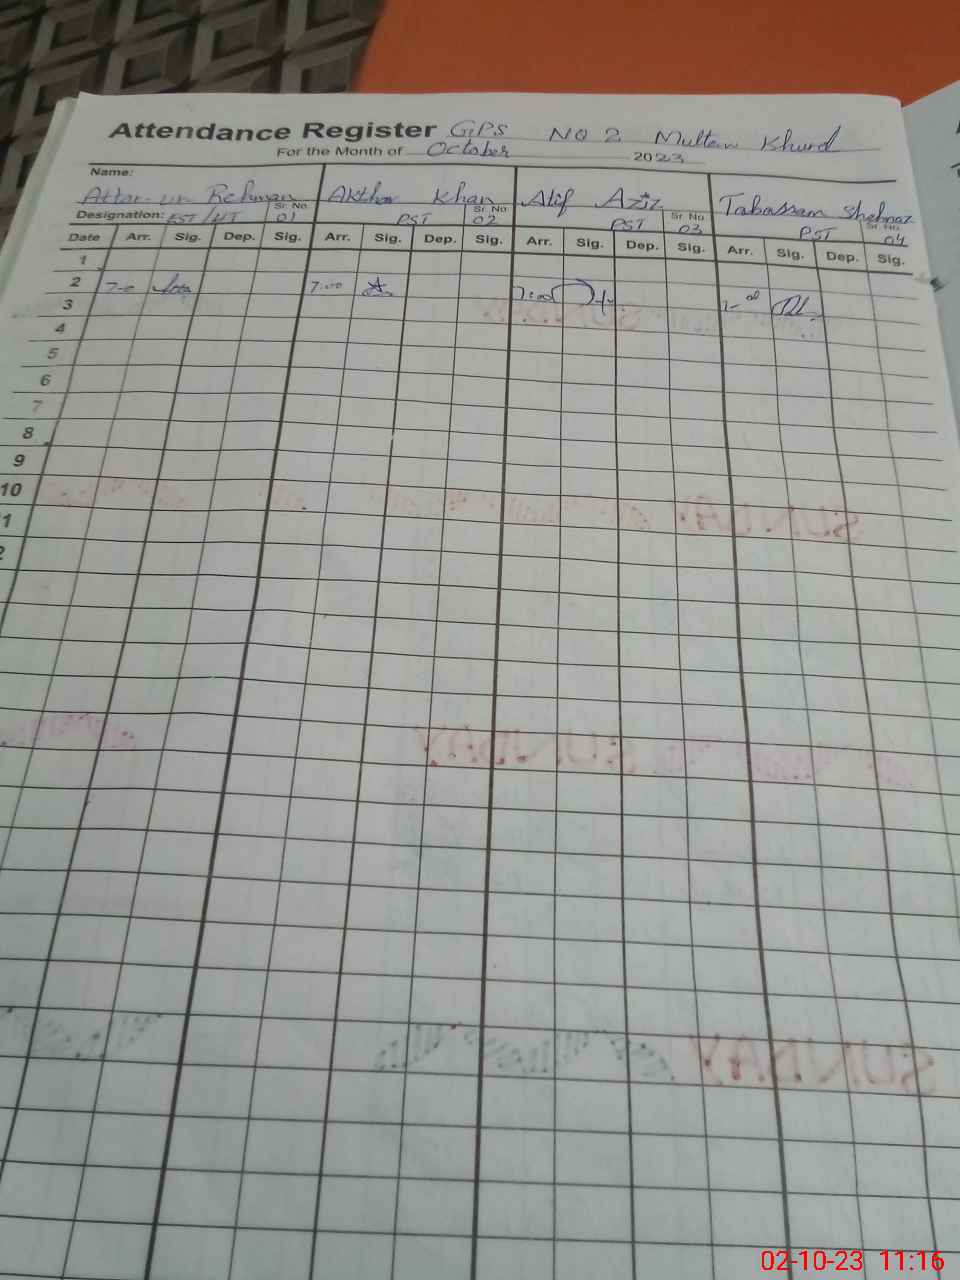 Attendance Register GPS NO 2 Multan Khurd
For the Month of October 2023
Name:
Attar-ur Rehman Akthar Khan Atif Aziz Tabassam Shehnaz
Designation: EST/HT Sr. No. 01 PST Sr. No. 02 PST Sr. No. 03 PST Sr. No. 04
Date Arr. Sig. Dep. Sig. Arr. Sig. Dep. Sig. Arr. Sig. Dep. Sig. Arr. Sig. Dep. Sig.
1
2 7-0 7:00 7:00 7-00
3
SUNDAY
4
5
6
7
8
9
10
SUNDAY
1
2
SUNDAY SUNDAY
SUNDAY
02-10-23 11:16